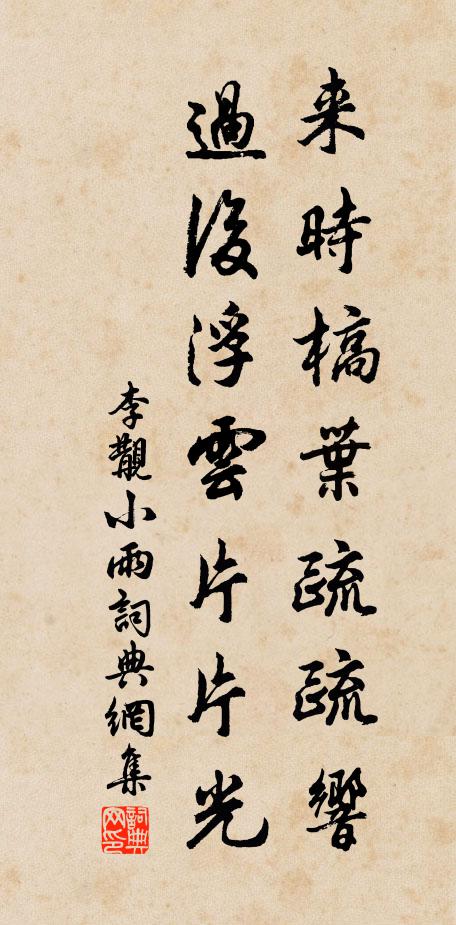 来時槁葉疏疏響
過後浮雲片片光
李觀小雨詞典網集
詞典網印